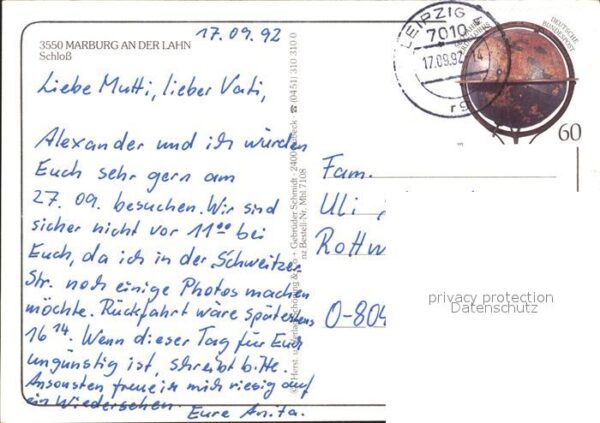 17.09.92
3550 MARBURG AN DER LAHN
Schloß
Liebe Mutti, lieber Vati,
Alexander und ich würden
Euch sehr gern am
27. 09. besuchen. Wir sind
sicher nicht vor 11⁰⁰ bei
Euch, da ich in der Schweitzer
Str. noch einige Photos machen
möchte. Rückfahrt wäre spätestens
16¹⁴. Wenn dieser Tag für Euch
ungünstig ist, schreibt bitte.
Ansonsten freue ich mich riesig auf
ein Wiedersehen
Eure Anita.
Gebrüder Schmidt · 2400 Lübeck · ☎ (0451) 310 310 0
Bestell-Nr. Mbl 7108
LEIPZIG
7010
17.09.92
DEUTSCHE
BUNDESPOST
60
Fam.
Uli
Rottw
O-804
privacy protection
Datenschutz